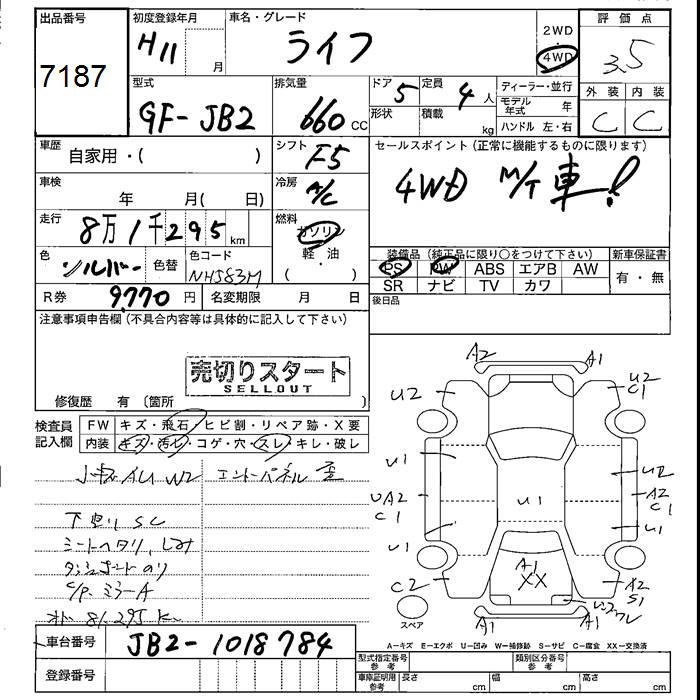 出品番号
7187
初度登録年月
H11 月
車名・グレード
ライフ
2WD
・
4WD
評価点
3.5
型式
GF-JB2
排気量
660 CC
ドア 5
形状
定員 4 人
積載 kg
ディーラー・並行
モデル年式 年
ハンドル 左・右
外装 内装
C C
車歴
自家用・( )
シフト
F5
セールスポイント (正常に機能するものに限ります)
4WD M/T車!
車検
年 月( 日)
冷房
A/C
走行
8万1千295 km
燃料
ガソリン
軽・油
( )
色
シルバー
色替
色コード
NH583M
装備品 (純正品に限り○をつけて下さい)
新車保証書
PS PW ABS エアB AW
有・無
SR ナビ TV カワ
R券 9,770 円
名変期限 月 日
後日品
注意事項申告欄 (不具合内容等は具体的に記入して下さい)
売切りスタート
SELLOUT
修復歴 有 〔箇所 〕
検査員
記入欄
FW キズ・飛石・ヒビ割・リペア跡・X要
内装 キズ・汚レ・コゲ・穴・スレ・キレ・破レ
W2 エントーパネル 歪
下廻り SC
シートヘタリ、しみ
ダッシュボードのり
ミラーA
81,295 K
A2 A1
U2 U2
C1
U1 U2
UA2
C1
U1
A2
C1
U1 U1
C2
A1
XX
A2
S1
スペア
A1 A1
A-キズ E-エクボ U-凹み W-補修跡 S-サビ C-腐食 XX-交換済
車台番号
JB2-1018784
登録番号
型式指定番号
参考
類別区分番号
参考
車庫証明用
参考
長さ cm
幅 cm
高さ cm